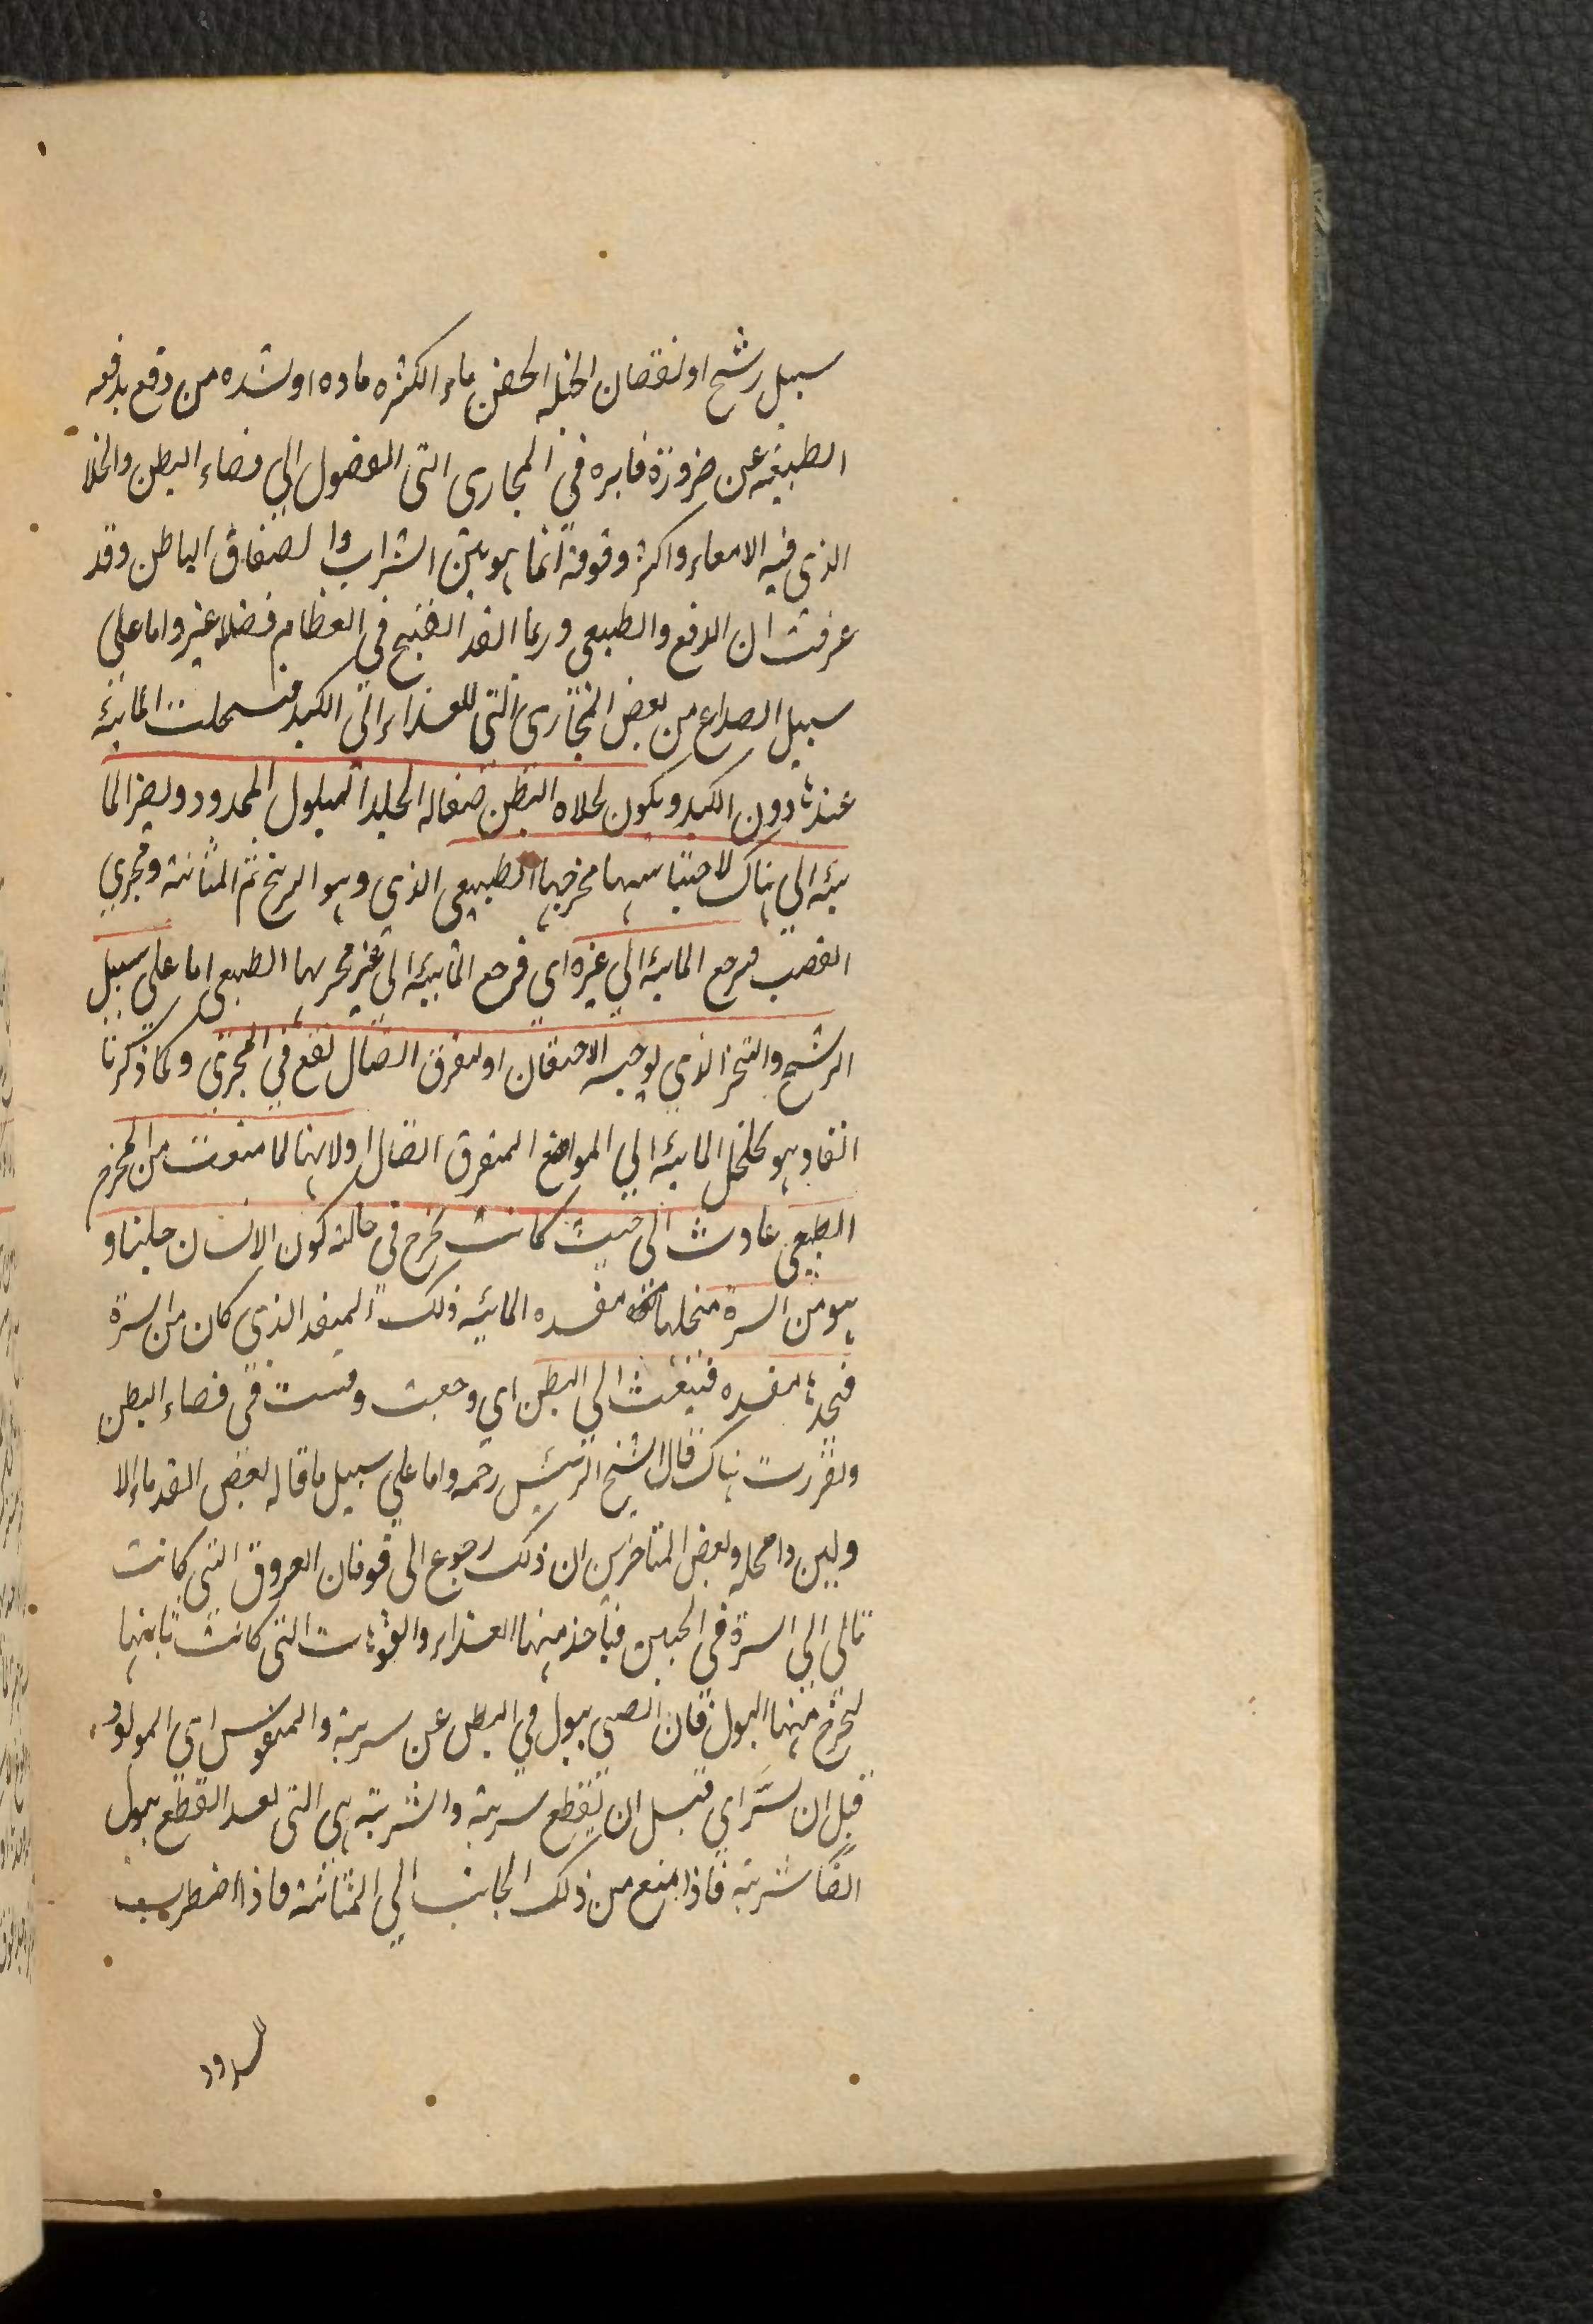 سبيل رشح او لنقصان الحيلة الحقن ماء الكثره ماده او لشده من دفع يدفعه
الطبيعه عن ضرورة قابره في المجارى التى الفضول الي فضاء البطن والخلا
الذى فيه الامعاء واكثر وقوفه انما هو بين الشراب وا لصفاق الباطن وقد
عرفت ان الدفع والطبيعى وربما انفذ القيح في العظام فضلا غير واما على
سبيل الصداع من بعض المجارى التى للغذاء الى الكبد فسحلت المائية
عندها دون الكبد ويكون لجلاه البطن صقاله الجلد المبلول الممدود ويصير الما
ئيه الي هناك لاحتباسها مخرجها الطبيعى الذى وهو البربخ ثم المثانة ومجري
القضيب فيرجع المائية الي غيره اي فرجع المائية الى غير مجريها الطبيعى اما علي سبيل
الرشح والتبخر الذي يوجبه الاحتقان او لتفرق اتصال يقع في المجرى وكما ذكرنا
انفا وهو تحلخل المائية الي المواضع المتفرق اتصال اولا بها لما منعت من المخرج
الطبيعى عادت الى حيث كانت يخرج في حالة كون الانسان جنينا و
هو من السرة منحلها مفسده المائيه ذلك المنفذ الذى كان من السرة
فيجدها مفسده فينفث الي البطن اي وجعت ومست في فضاء البطن
وتقررت هناك قال الشيخ الرئيس رحمه واما علي سبيل ما قاله بعض القدماء الا
ولين وامحله وبعض المتاخرين ان ذلك رجوع الى فوفان العروق التى كانت
تالى الي السرة في الجنين فياخذ منها الغذاء والفوهات التى كانت تاتيها
ليخرج منها البول فان الصبى يبول في البطن عن سرية والمنفوس اى المولود
قبل ان سر اي قبل ان يقطع سريه والشرية هي التى بعد القطع يبول
ايضا سرية فاذا امتنع من ذلك الجانب الي المثانة فاذا اضطرب
لسدود